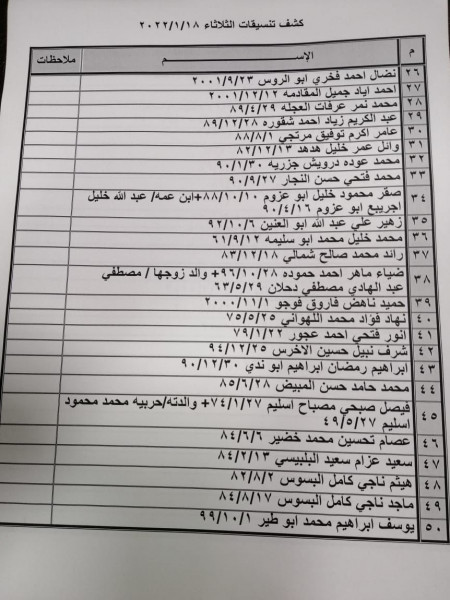 كشف تنسيقات الثلاثاء ٢٠٢٢/١/١٨
م الإســـــــم ملاحظات
٢٦ نضال احمد فخري ابو الروس ٢٠٠١/٩/٢٣
٢٧ احمد اياد جميل المقادمه ٢٠٠١/١٢/١٢
٢٨ محمد نمر عرفات العجله ٨٩/٤/٢٩
٢٩ عبد الكريم زياد احمد شقوره ٨٩/١٢/٢٨
٣٠ عامر اكرم توفيق مرتجي ٨٨/٨/١
٣١ وائل عمر خليل هدهد ٨٢/١٢/١٣
٣٢ محمد عوده درويش جزريه ٩٠/١/٣٠
٣٣ محمد فتحي حسن النجار ٩٠/٩/٢٧
٣٤ صقر محمود خليل ابو عزوم ٨٨/١٠/١٠+ابن عمه/ عبد الله خليل
اجريبع ابو عزوم ٩٠/٤/١٦
٣٥ زهير علي عبد الله ابو العنين ٩٢/١٠/٦
٣٦ محمد خليل محمد ابو سليمه ٦١/٩/١٢
٣٧ رائد محمد صالح شمالي ٨٣/١٢/١٨
٣٨ ضياء ماهر احمد حموده ٩٦/١٠/٢٨+ والد زوجها / مصطفي
عبد الهادي مصطفي دحلان ٦٣/٥/٢٩
٣٩ حميد ناهض فاروق فوجو ٢٠٠٠/١١/١
٤٠ نهاد فؤاد محمد اللهواني ٧٥/٥/٢٥
٤١ انور فتحي احمد عجور ٧٩/١/٢٢
٤٢ شرف نبيل حسين الاخرس ٩٤/١٢/٢٥
٤٣ ابراهيم رمضان ابراهيم ابو ندي ٩٠/١٢/٣٠
٤٤ محمد حامد حسن المبيض ٨٥/٦/٢٨
٤٥ فيصل صبحي مصباح اسليم ٧٤/١/٢٧+ والدته/حربيه محمد محمود
اسليم ٤٩/٥/٢٧
٤٦ عصام تحسين محمد خضير ٨٤/٦/٦
٤٧ سعيد عزام سعيد البلبيسي ٨٤/٢/١٣
٤٨ هيثم ناجي كامل البسوس ٨٢/٨/٢
٤٩ ماجد ناجي كامل البسوس ٨٤/٨/١٧
٥٠ يوسف ابراهيم محمد ابو طير ٩٩/١٠/١